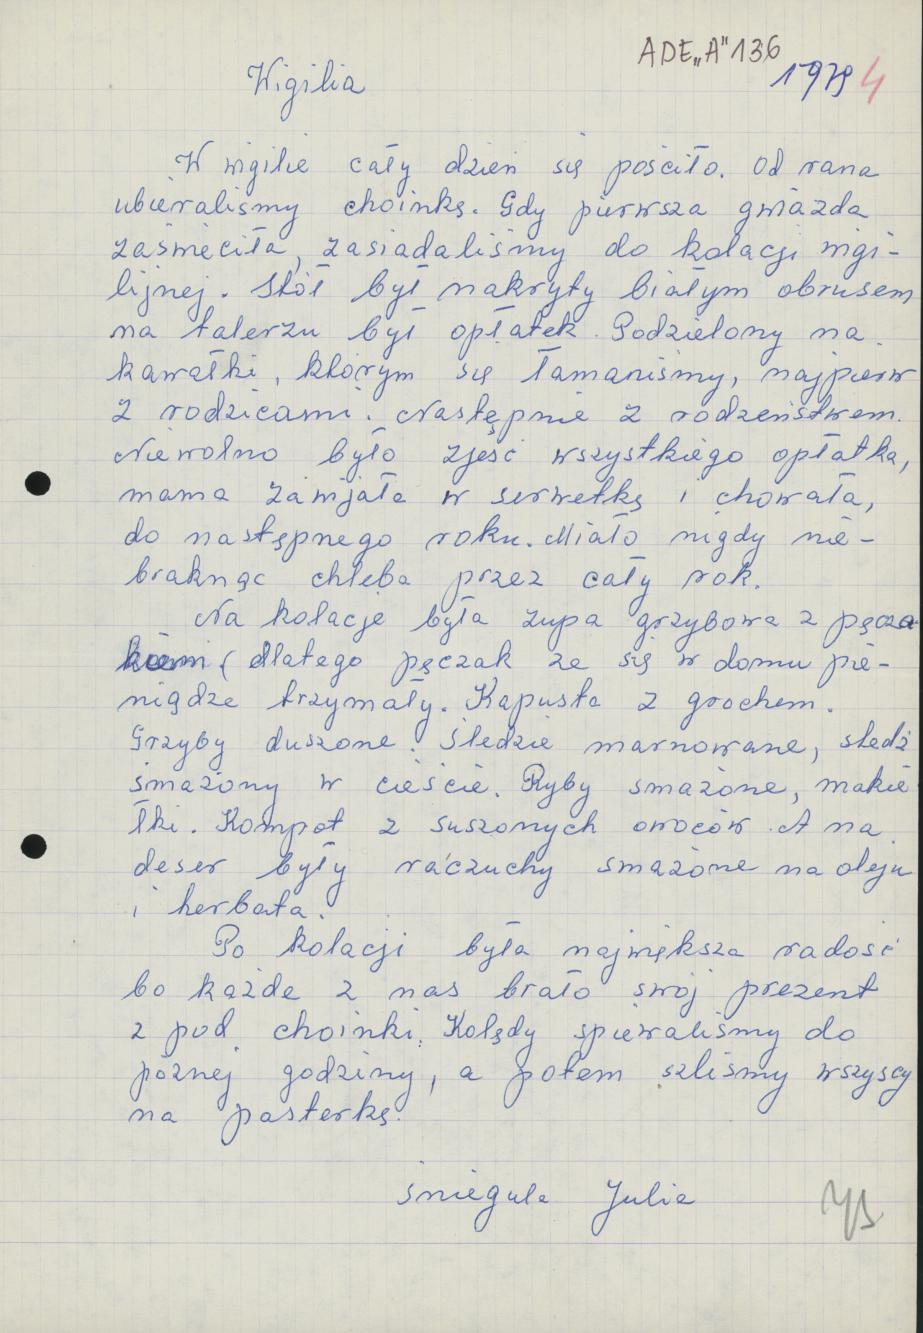 ADE„A"136
1979 4
Wigilia
W wigilie cały dzień się pościło. Od rana
ubieraliśmy choinkę. Gdy pierwsza gwiazda
zaświeciła, zasiadaliśmy do kolacji wigi-
lijnej. Stół był nakryty białym obrusem
na talerzu był opłatek. Podzielony na
kawałki, którym się łamaniśmy, najpierw
z rodzicami. Następnie z rodzeństwem.
Niewolno było zjęść wszystkiego opłatka,
mama zawijała w serwetkę i chowała,
do następnego roku. Miało nigdy nie-
braknąć chleba przez cały rok.
Na kolacje była zupa grzybowa z pęcza
kiem (dlatego pęczak ze się w domu pie-
niądze trzymały. Kapusta z grochem.
Grzyby duszone. Śledzie marnowane, śledź
smażony w cieście. Ryby smażone, makie
łki. Kompot z suszonych owoców. A na
deser były raczuchy smażone na oleju
i herbata.
Po kolacji była największa radość
bo każde z nas brało swój prezent
z pod choinki. Kolędy śpiewaliśmy do
późnej godziny, a potem szliśmy wszyscy
na pasterkę.
Śniegula Julia